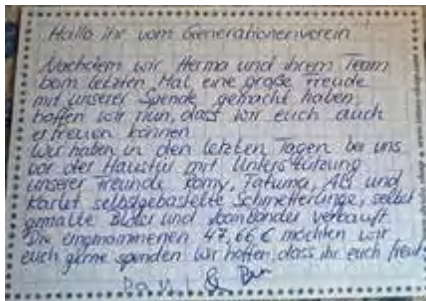 Hallo ihr vom Generationenverein!
Nachdem wir Herma und ihrem Team
beim letzten Mal eine große Freude
mit unserer Spende gemacht haben,
hoffen wir nun, dass wir euch auch
erfreuen können
Wir haben in den letzten Tagen bei uns
vor der Haustür mit Unterstützung
unserer Freunde Romy, Fatuma, Ali und
selbstgebastelte Schmetterlinge, selbst
gemalte Bilder und verkauft.
Die eingenommenen 47,66 € möchten wir
euch gerne spenden. Wir hoffen, dass ihr euch freut